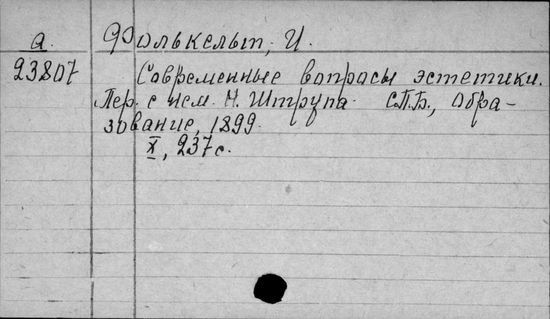 а. Фолькельт, И.
23807 Современные вопросы эстетики.
Пер. с нем. Н. Штрупа. С.П.Б., Обра-
зование, 1899.
X, 237 с.